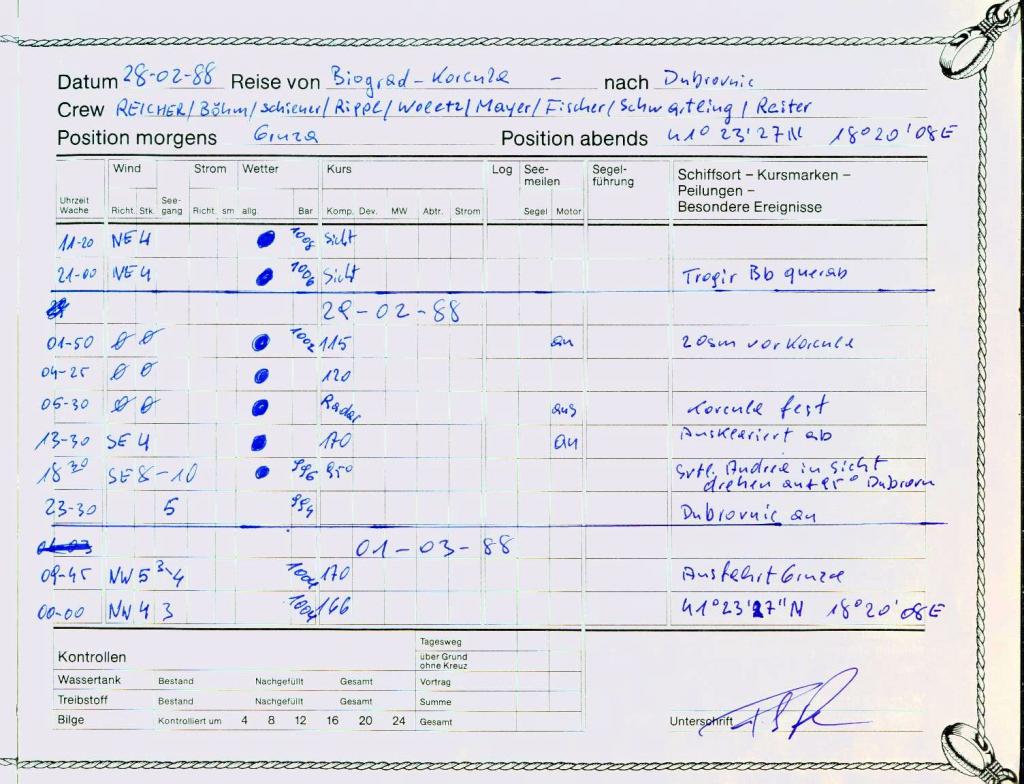 Datum 28-02-88 Reise von Biograd - Korcula - nach Dubrovnic
Crew REICHER / Böhm / Schiener / Rippl / Woletz / Mayer / Fischer / Schwartling / Reiter
Position morgens Gruza Position abends 41° 23' 27 N 18° 20' 08 E
Wind Strom Wetter Kurs Log See-meilen Segel-führung Schiffsort – Kursmarken –
Peilungen –
Uhrzeit Wache Richt. Stk. See-gang Richt. sm allg. Bar Komp. Dev. MW Abtr. Strom Segel Motor Besondere Ereignisse
11-20 NE 4 1006 Sicht
21-00 NE 4 1006 Sicht Trogir Bb querab
29-02-88
01-50 Ø Ø 1002 115 an 20sm vor Korcula
04-25 Ø Ø 120
05-30 Ø Ø Radar aus Korcula fest
13-30 SE 4 170 an Ausklariert ab
18 30 SE 8-10 996 950 Andrea in Sicht
drehen auf 95° Dubrovn
23-30 5 994 Dubrovnic an
01-03-88
09-45 NW 5 3-4 1004 170 Ausfahrt Gruza
00-00 NW 4 3 1004 166 41° 23' 27" N 18° 20' 08 E
Kontrollen Tagesweg
über Grund
ohne Kreuz
Wassertank Bestand Nachgefüllt Gesamt Vortrag
Treibstoff Bestand Nachgefüllt Gesamt Summe
Bilge Kontrolliert um 4 8 12 16 20 24 Gesamt
Unterschrift